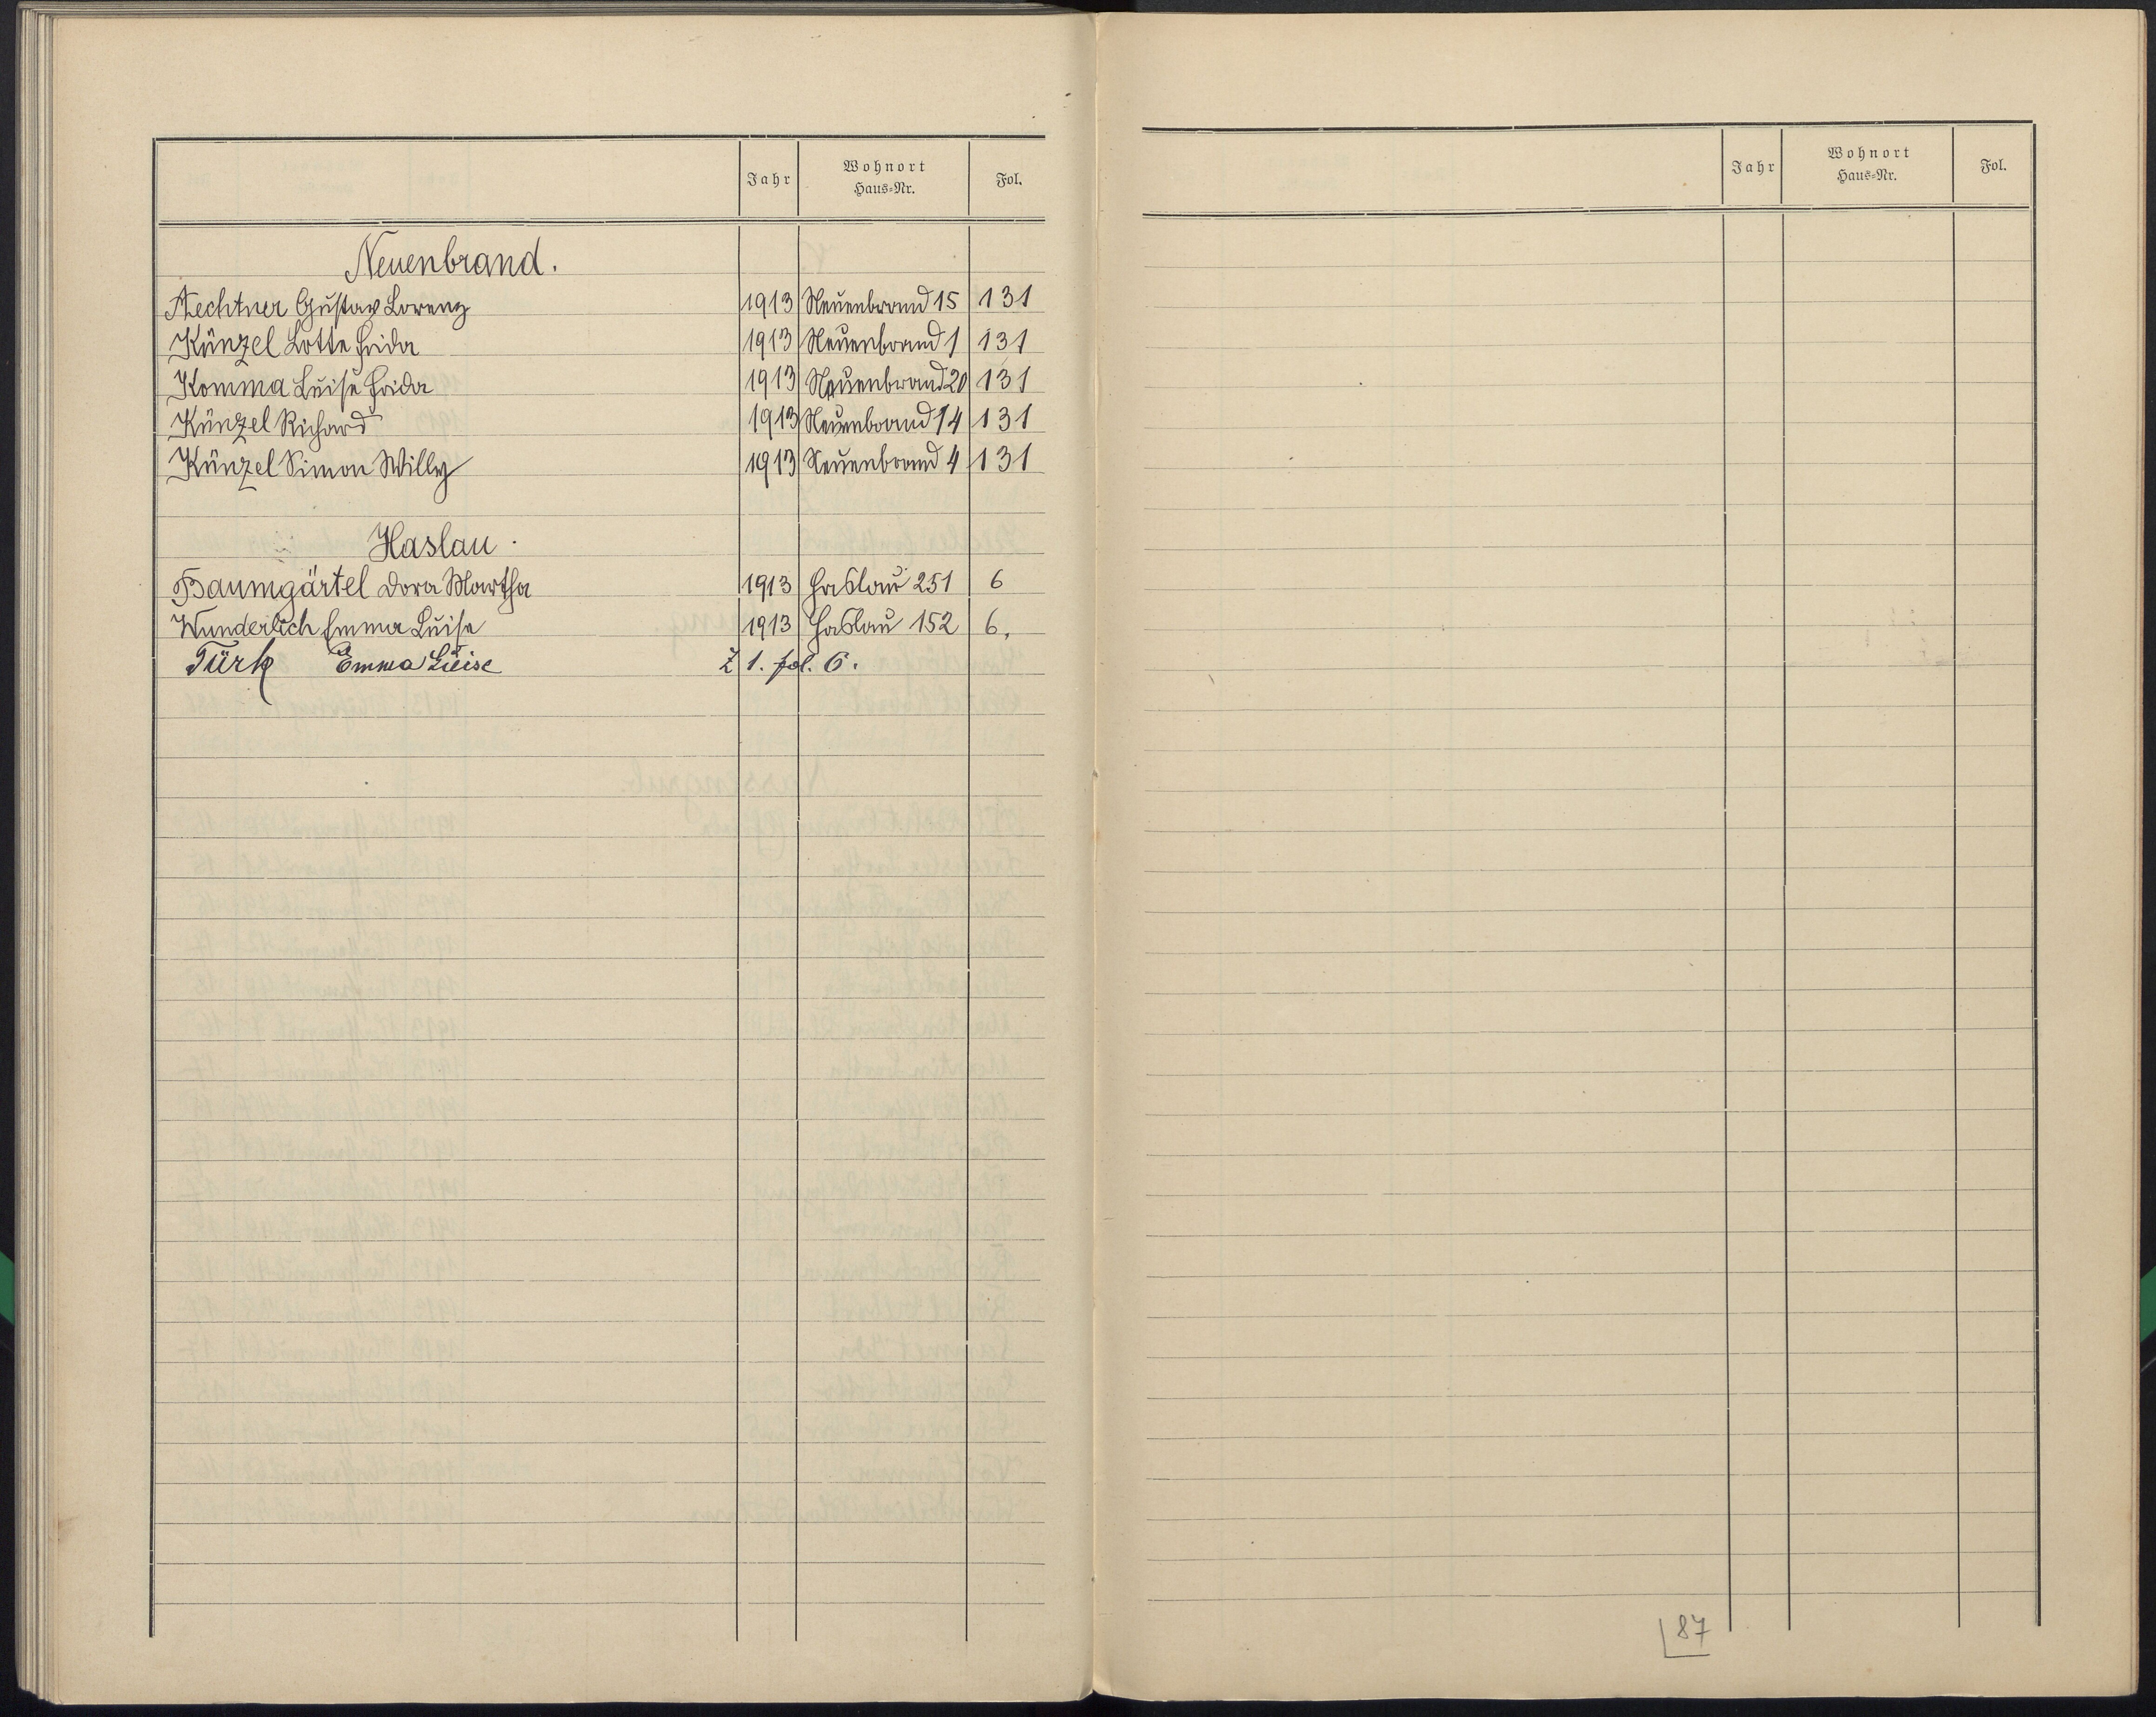 Jahr Wohnort Haus-Nr. Fol.
Neuenbrand.
Aechtner Gustav Lorenz 1913 Neuenbrand 15 131
Künzel Lotte Frida 1913 Neuenbrand 1 131
Komma Luise Frida 1913 Neuenbrand 20 131
Künzel Richard 1913 Neuenbrand 14 131
Künzel Simon Willy 1913 Neuenbrand 4 131
Haslau.
Baumgärtel Dora Martha 1913 Haslau 251 6
Wunderlich Emma Luise 1913 Haslau 152 6.
Türk Emma Luise Z 1. fol. 6.
Jahr Wohnort Haus-Nr. Fol.
87